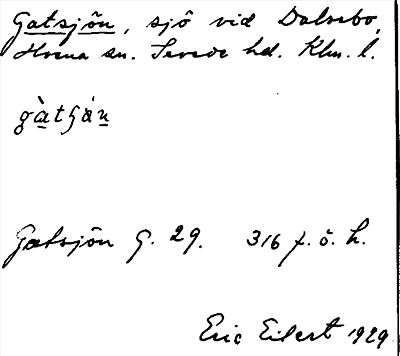 Gatsjön, sjö vid Dalsebo,
Hvena sn. Sevede hd. Klm. l.
gàtʃán
Gatsjön G. 29. 316 f. ö. h.
Eric Eilert 1929